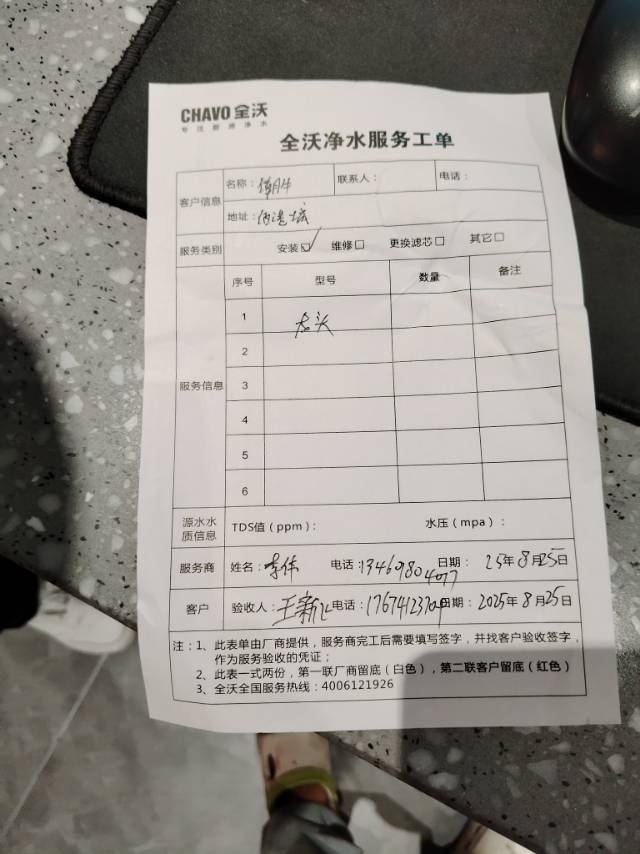 CHAVO 全沃
专注厨房净水
全沃净水服务工单
客户信息
名称： 联系人： 电话：
地址：
服务类别 安装☑ 维修□ 更换滤芯□ 其它□
服务信息
序号 型号 数量 备注
1 龙头
2
3
4
5
6
源水水质信息 TDS值（ppm）： 水压（mpa）：
服务商 姓名：李伟 电话：13469804077 日期：25年8月25日
客户 验收人：王新 电话： 日期：2025年8月25日
注：1、此表单由厂商提供，服务商完工后需要填写签字，并找客户验收签字，
作为服务验收的凭证；
2、此表一式两份，第一联厂商留底（白色），第二联客户留底（红色）
3、全沃全国服务热线：4006121926